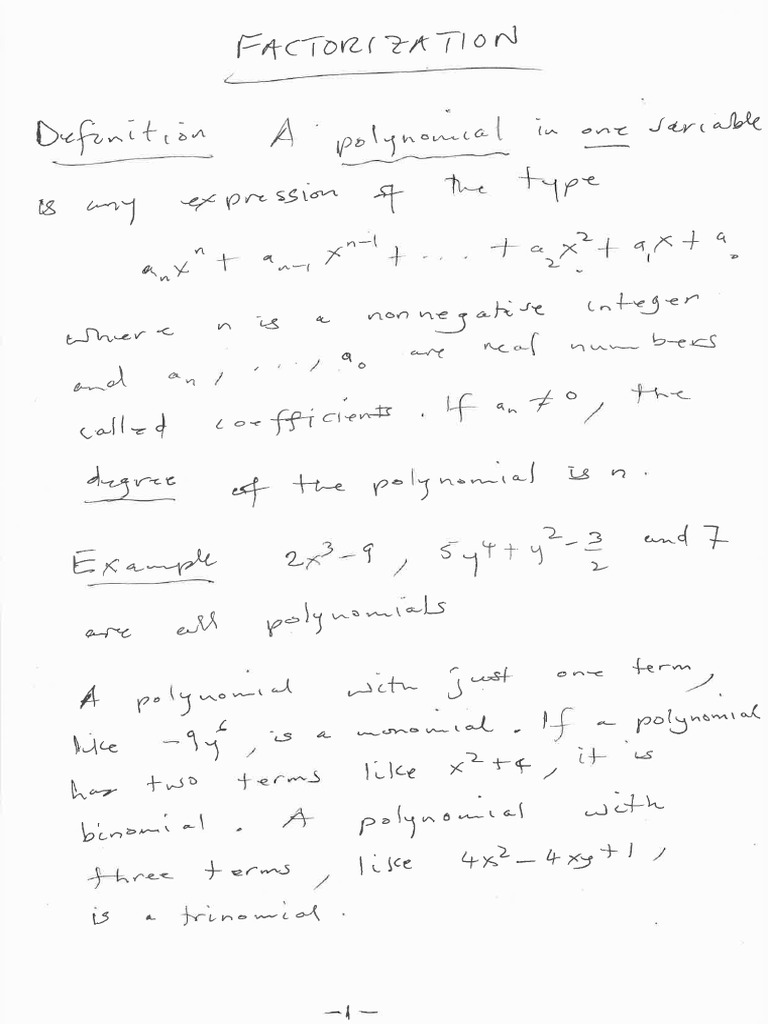 FACTORIZATION
Definition A polynomical in one variable
is any expression of the type
aₙxⁿ + aₙ₋₁xⁿ⁻¹ + . . . + a₂x² + a₁x + a₀
where n is a nonnegative integer
and aₙ, . . . , a₀ are real numbers
called coefficients. If aₙ ≠ 0, the
degree of the polynomial is n.
Example 2x³ - 9, 5y⁴ + y² - 3/2 and 7
are all polynomials
A polynomial with just one term,
like -9y⁶, is a monomial. If a polynomial
has two terms like x² + 4, it is
binomial. A polynomial with
three terms, like 4x² - 4xy + 1,
is a trinomial.
-1-